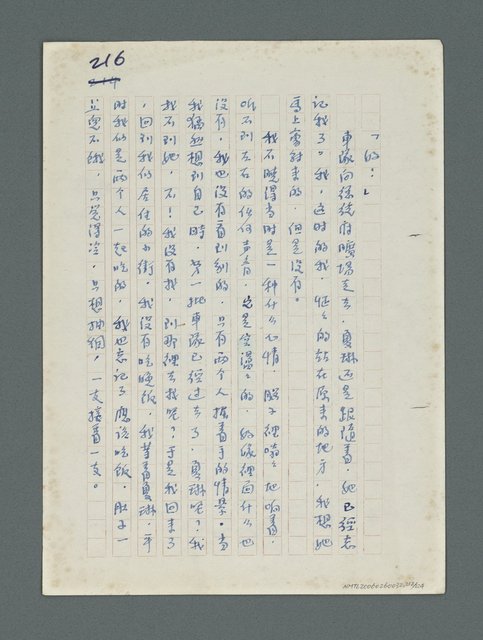 216
「的：」
車隊向總統府廣場走去，夏琳还是跟隨着，她已經忘
記我了。我，这时的我，怔怔的站在原来的地方，我想她
馬上會討来的，但是没有。
我不曉得当时是一种什么心情，腦子裡嗡嗡地响着，
听不到左右的任何声音，总是空濛濛的，好像裡面什么也
没有，我也没有看到别的，只有两个人拉着手的情景。当
我猛然想到自己時，另一批車隊已經过去了，夏琳呢？我
找不到她，不！我没有找，到那裡去找呢？，于是我回来了
，回到我们居住的小街，我没有吃晚飯，我等着夏琳，平
时我们是两个人一起吃的，我也忘記了應該吃飯，肚子一
点也不餓，只觉得冷，只想抽烟，一支接着一支。